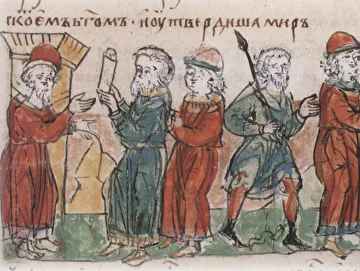 скоемъ бг҃омъ · и оутвердиша миръ